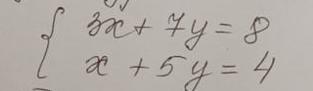 3x + 7y = 8
x + 5y = 4